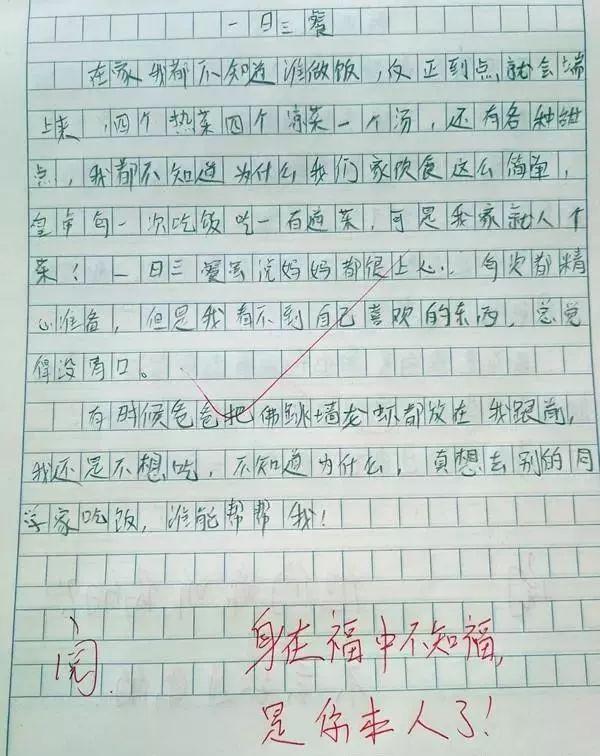 一日三爱
在家我都不知道谁做饭,反正到点就会端
上来,四个热菜四个凉菜一个汤,还有各种甜
点,我都不知道为什么我们家饮食这么简单,
皇帝每一次吃饭吃一百道菜,可是我家就八个
菜!一日三爱虽说妈妈都很上心,每次都精
心准备,但是我看不到自己喜欢的东西,总觉
得没胃口。
有时候爸爸把佛跳墙龙虾都放在我跟前,
我还是不想吃,不知道为什么,真想去别的同
学家吃饭,谁能帮帮我!
阅
身在福中不知福,
是你本人了!